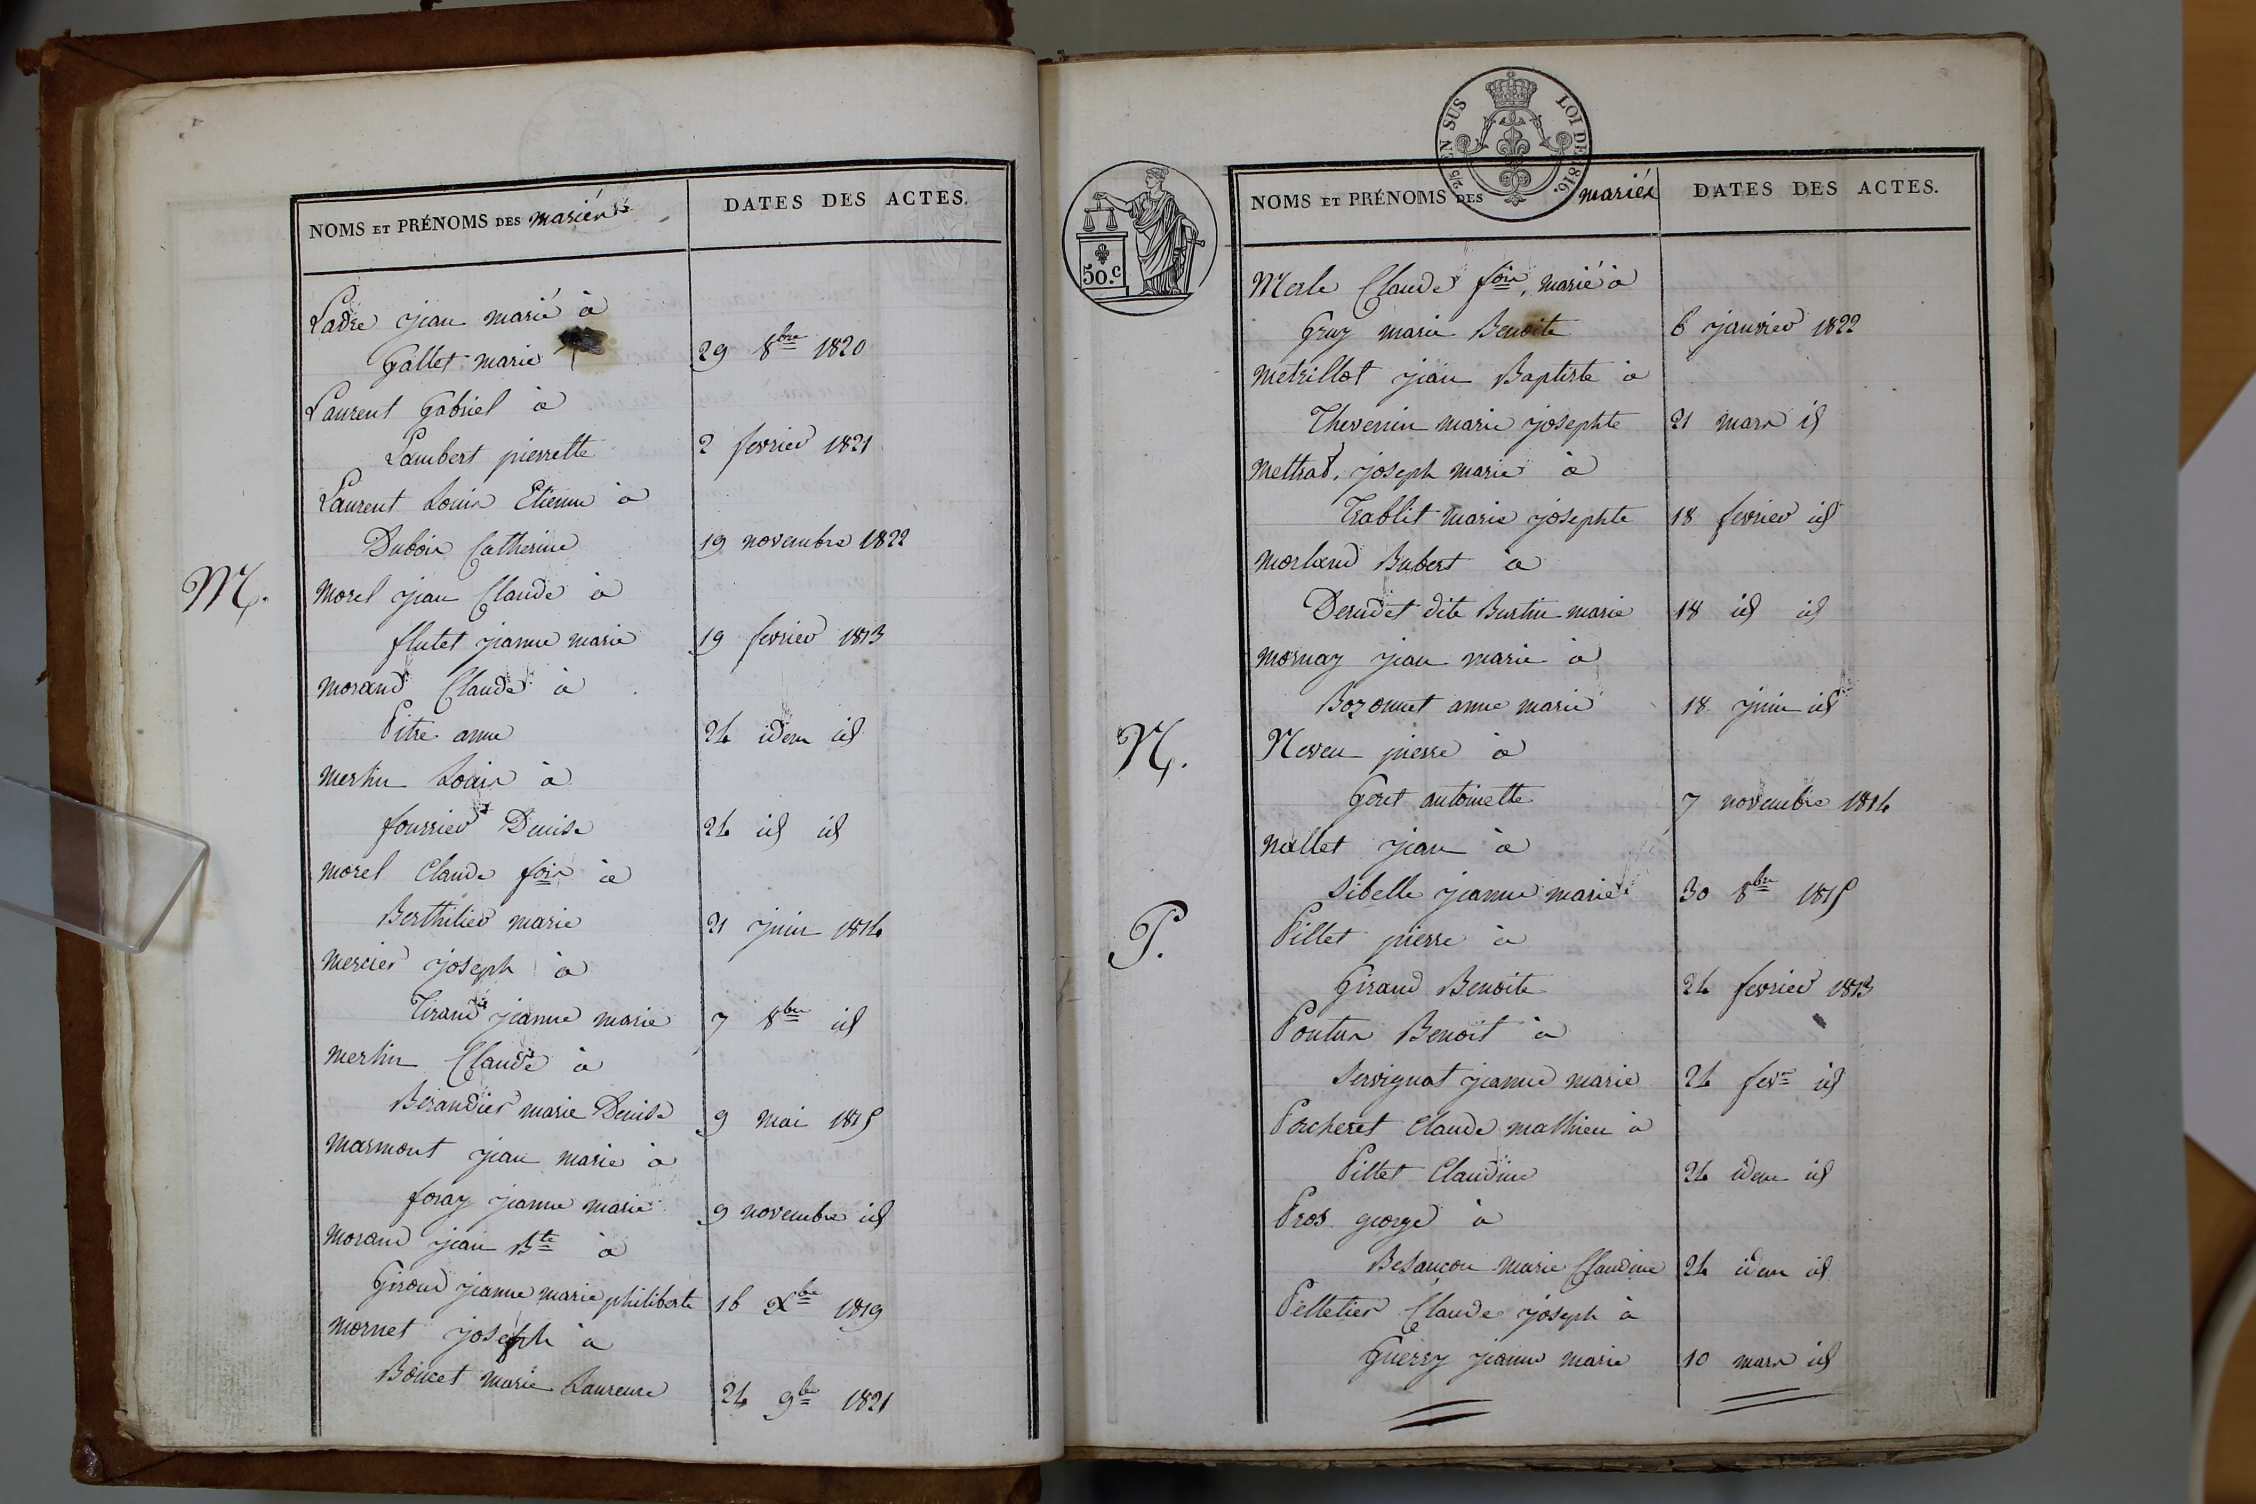 NOMS ET PRÉNOMS DES mariés
DATES DES ACTES.
Ladre jean marié à
Gallet marie 29 8bre 1820
Laurent Gabriel à
Lambert pierrette 2 fevrier 1821
Laurent Louis Etienne à
Dubois Catherine 19 novembre 1822
M.
Morel jean Claude à
flutet jeanne marie 19 fevrier 1813
Morand Claude à
Pitre anne 24 idem id
Merlin Louis à
fourrier Denise 24 id id
Morel Claude fois à
Berthilier marie 21 juin 1814
Mercier joseph à
Tirand jeanne marie 7 8bre id
Merlin Claude à
Berandier marie Denise 9 mai 1815
Marmont jean marie à
foray jeanne marie 9 novembre id
Morand jean Bte à
Giroud jeanne marie philiberte 16 Xbre 1819
Mornet joseph à
Boucet marie Laurence 24 9bre 1821
2/5 EN SUS
LOI DE 1816.
50.c
NOMS ET PRÉNOMS DES mariés
DATES DES ACTES.
Merle Claude fois, marié à
Gruy marie Benoite 6 janvier 1822
Metrillot jean Baptiste à
Thevenin marie josephte 21 mars id
Mettrad joseph marie à
Trablit marie josephte 18 fevrier id
Morland Bubert à
Derudet dite Burtin marie 18 id id
Mornay jean marie à
Bozonnet anne marie 18 juin id
N.
Neveu pierre à
Goret antoinette 7 novembre 1814
Nallet jean à
Sibelle jeanne marie 30 8bre 1815
P.
Pillet pierre à
Giraud Benoite 24 fevrier 1813
Poutus Benoit à
Servignat jeanne marie 24 fevr id
Porcheret Claude mathieu à
Pillet Claudine 24 idem id
Pros george à
Besancon marie Claudine 24 idem id
Pelletier Claude joseph à
Guerry jeanne marie 10 mars id